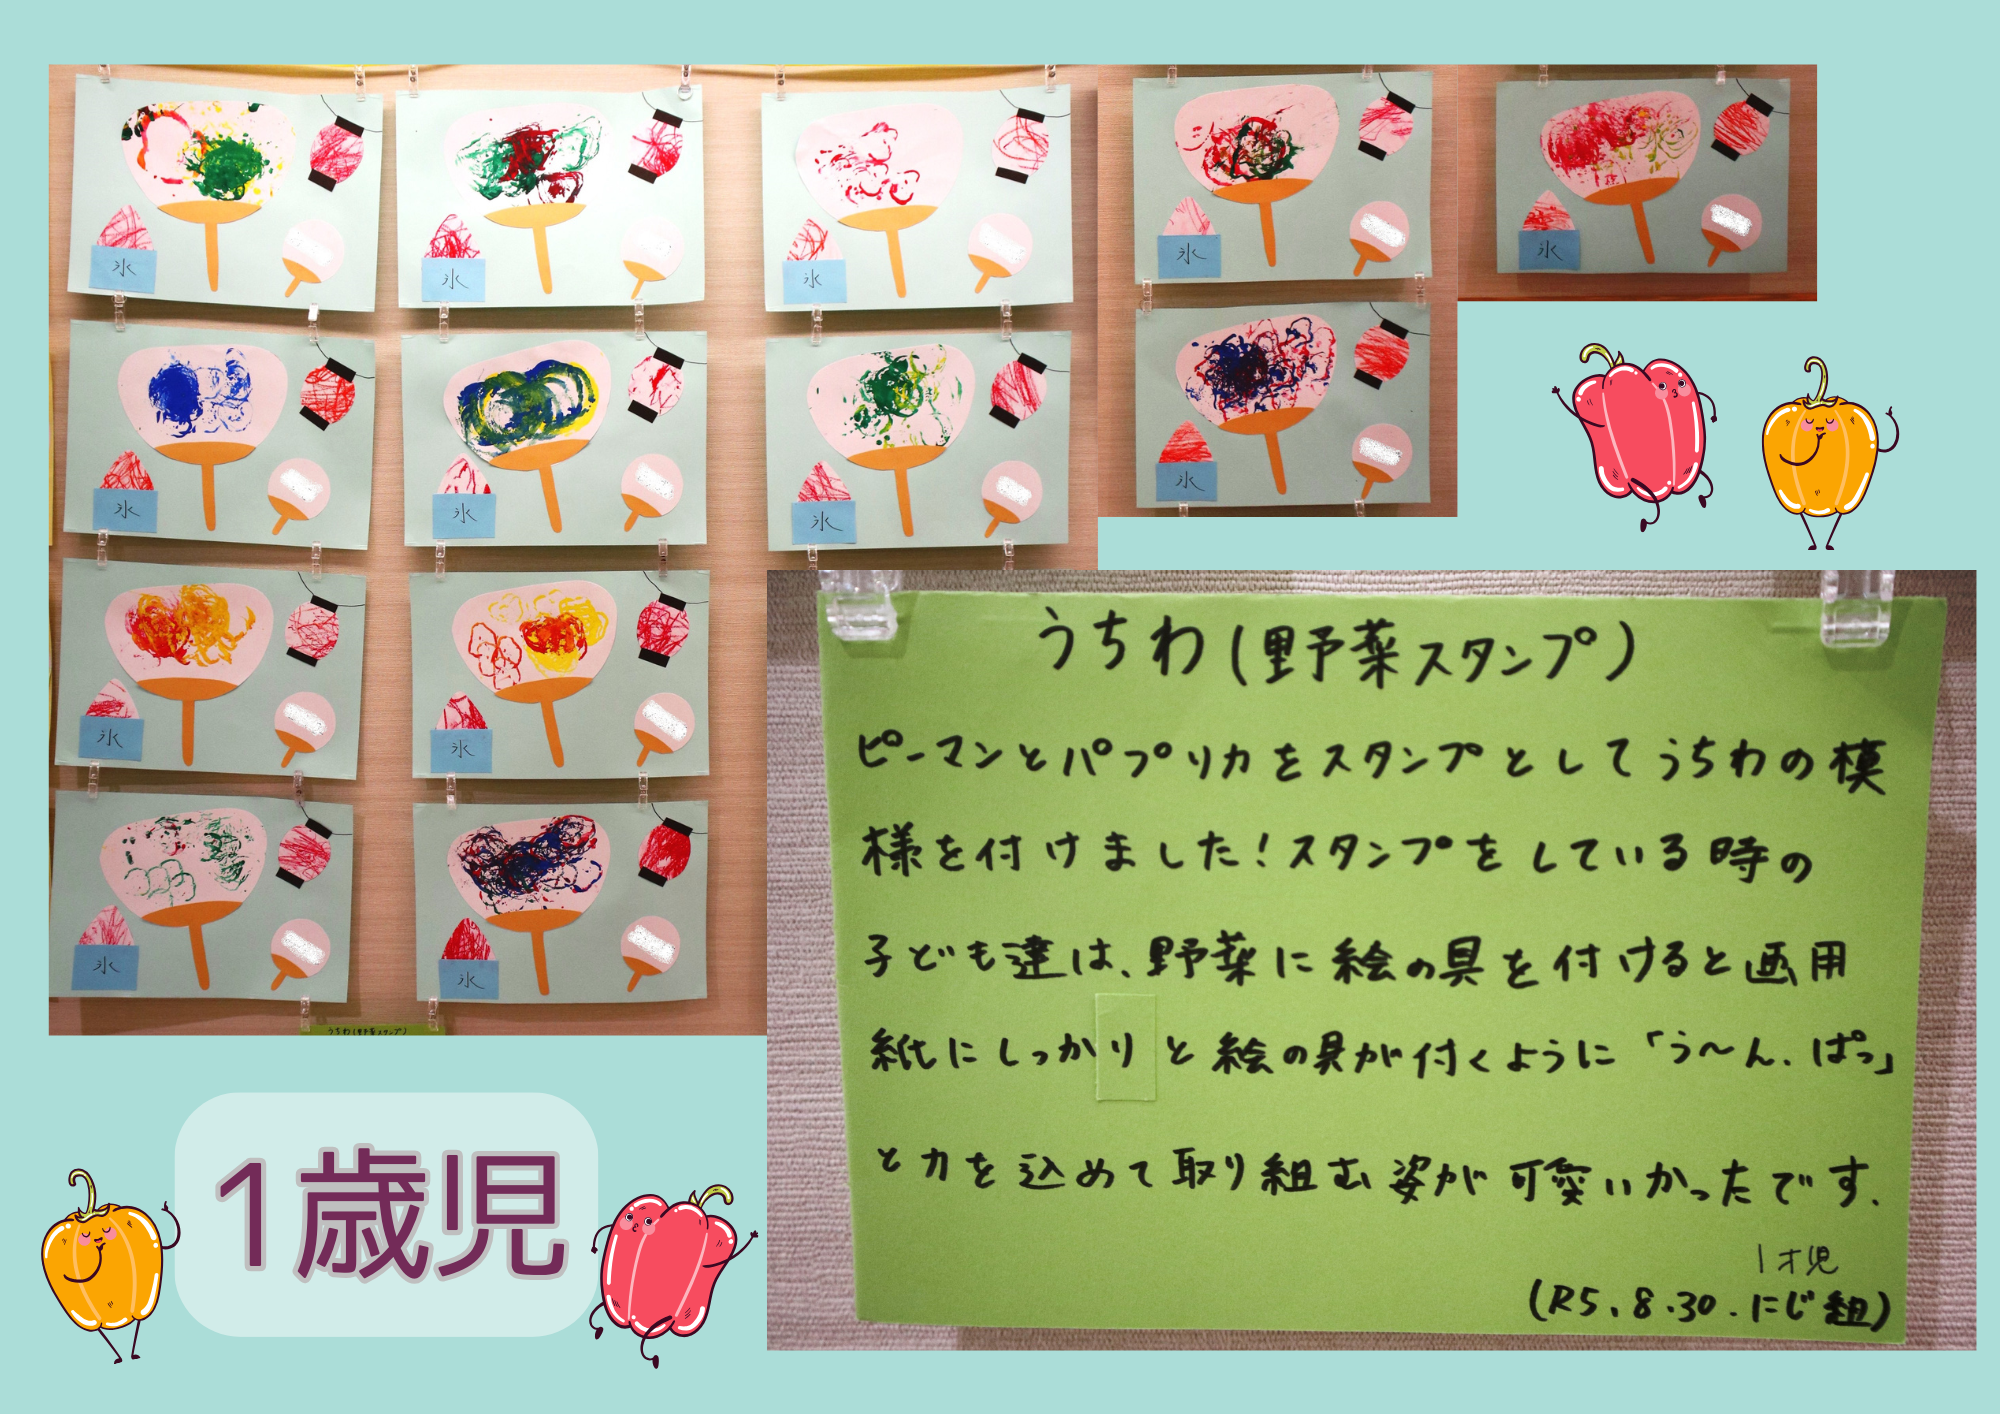 氷
氷
氷
氷
氷
氷
氷
氷
氷
氷
氷
氷
氷
うちわ(野菜スタンプ)
うちわ(野菜スタンプ)
ピーマンとパプリカをスタンプとしてうちわの模
様を付けました!スタンプをしている時の
子ども達は、野菜に絵の具を付けると画用
紙にしっかりと絵の具が付くように「う〜ん、ぱっ」
と力を込めて取り組む姿が可愛いかったです。
1才児
(R5.8.30.にじ組)
1歳児